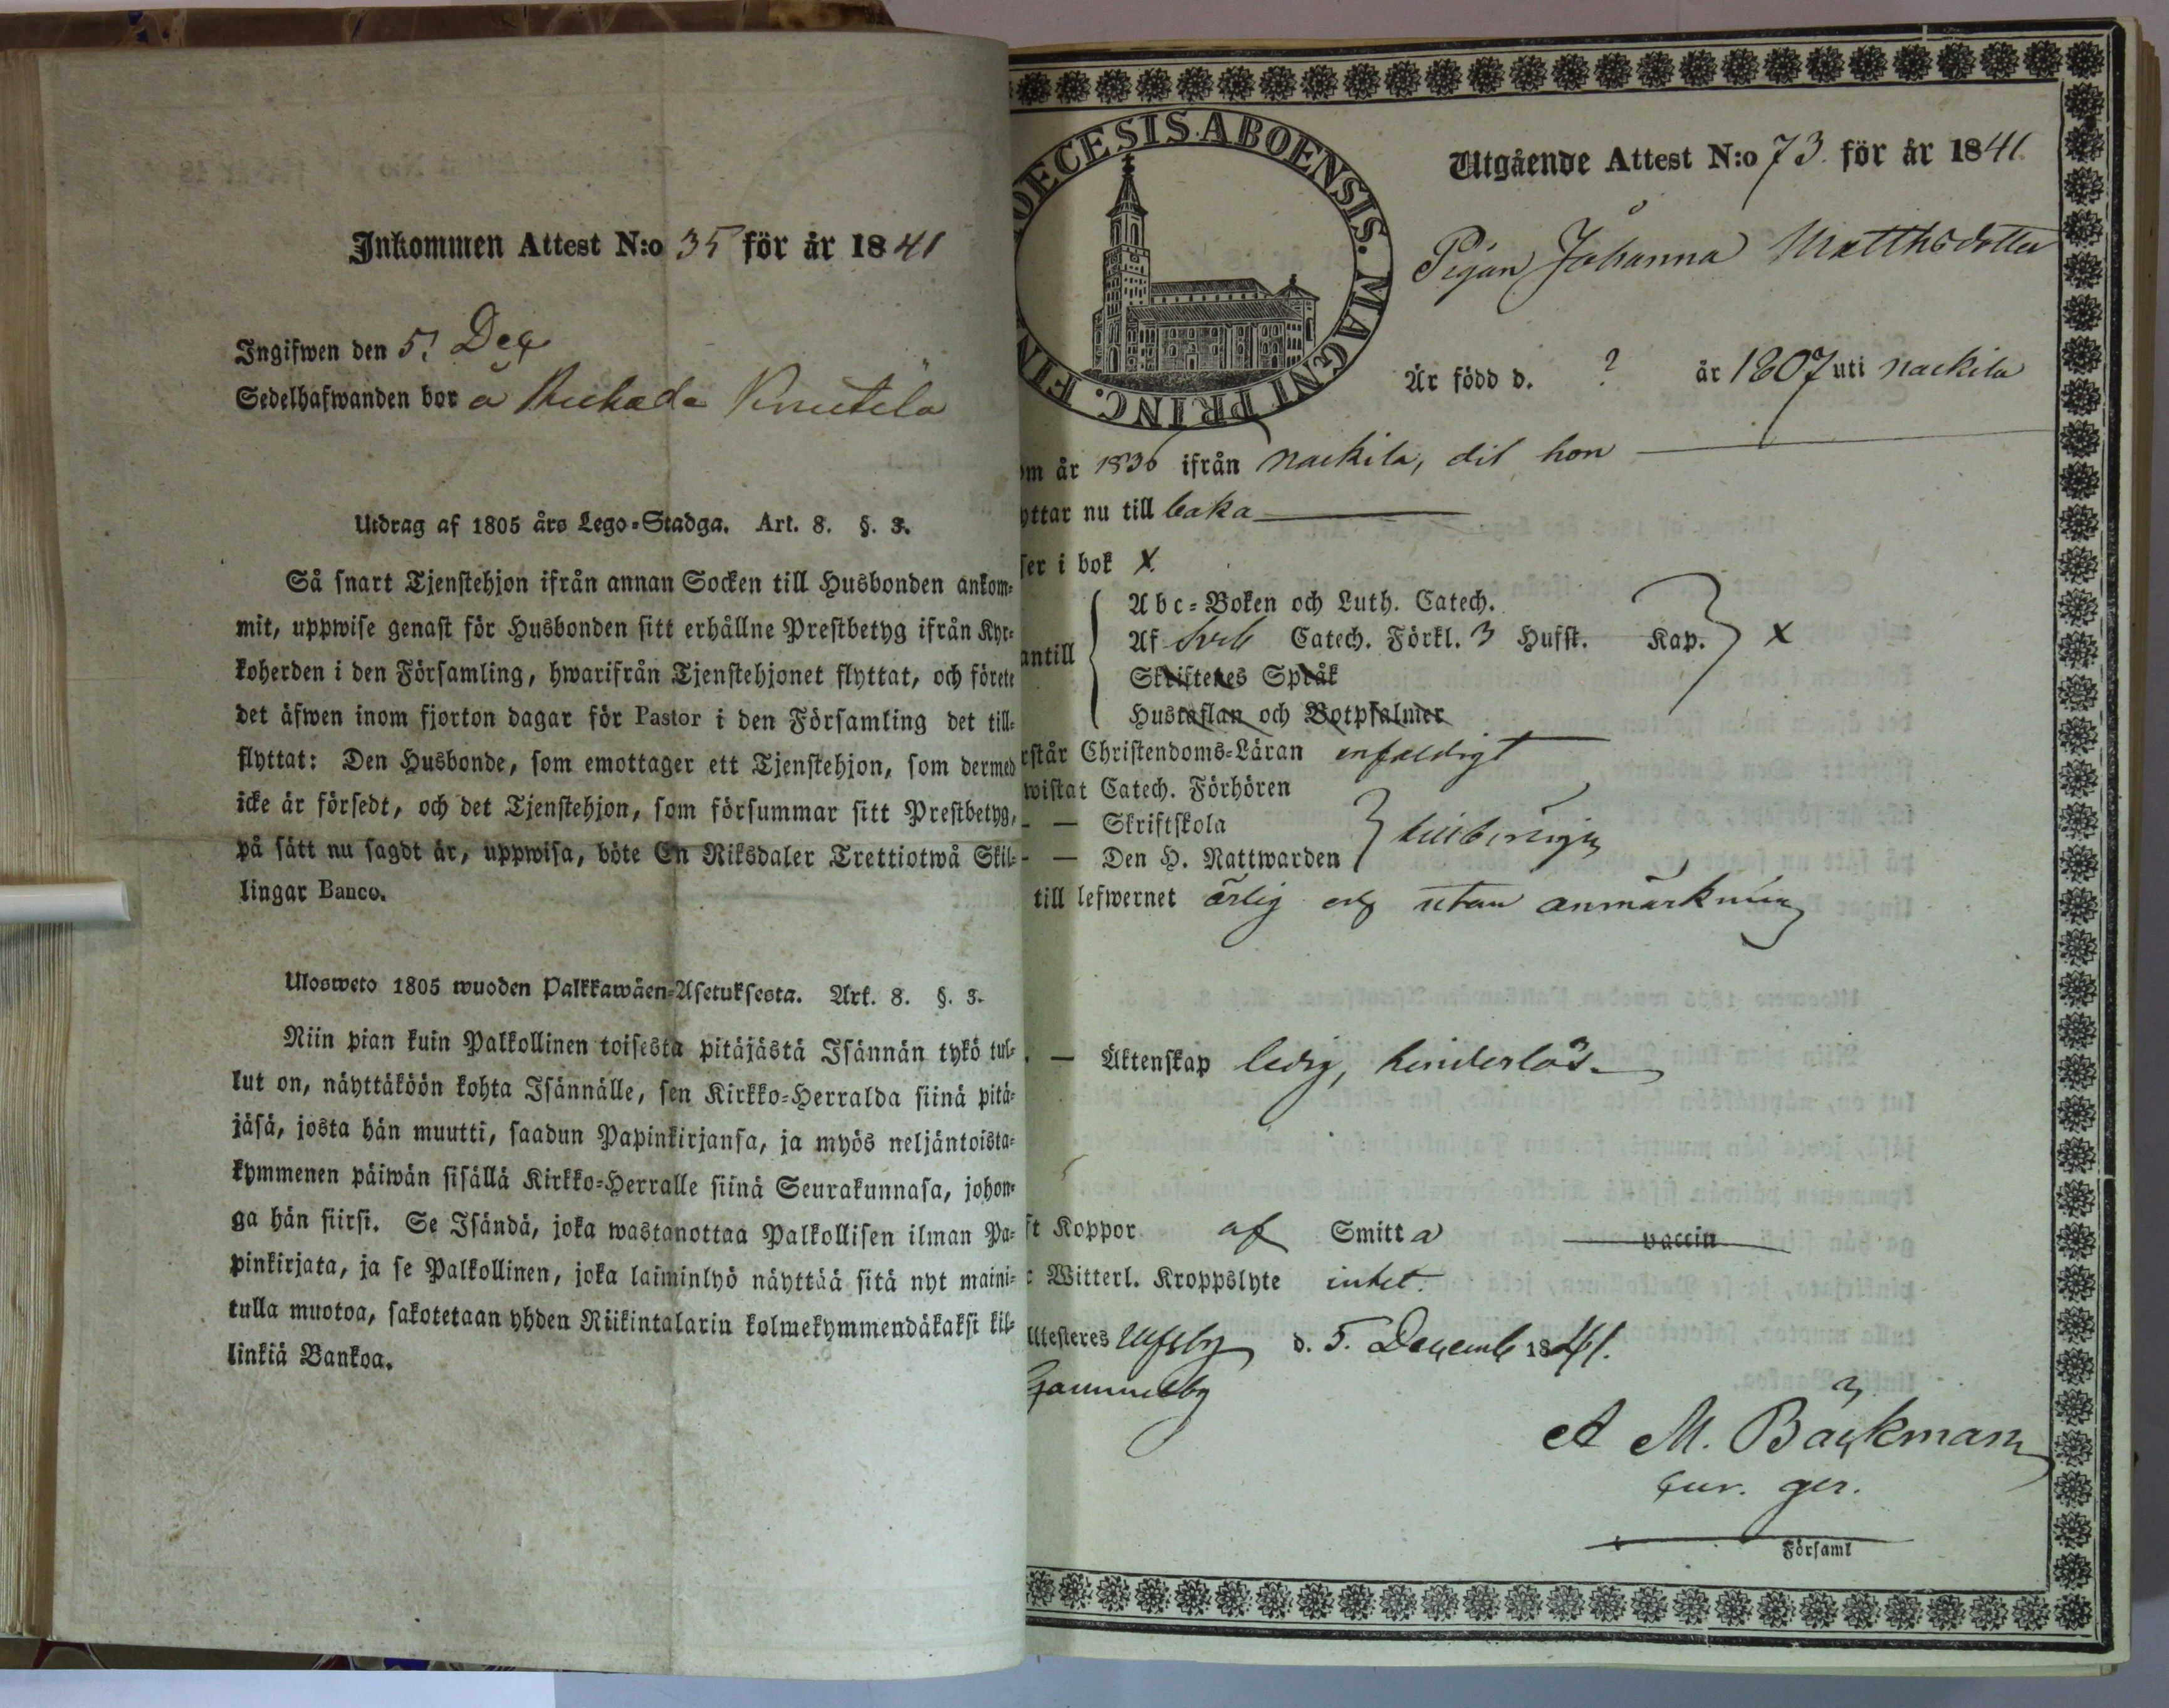 Inkommen Attest N:o 35 för år 1841
Ingifwen den 5. Dec
Sedelhafwanden bor å Knutila
Utdrag af 1805 års Lego-Stadga. Art. 8. §. 3.
Så snart Tjenstehjon ifrån annan Socken till Husbonden ankom-
mit, uppwise genast för Husbonden sitt erhållne Prestbetyg ifrån Kyr-
koherden i den Församling, hwarifrån Tjenstehjonet flyttat, och förete
det äfwen inom fjorton dagar för Pastor i den Församling det till-
flyttat: Den Husbonde, som emottager ett Tjenstehjon, som dermed
icke är försedt, och det Tjenstehjon, som försummar sitt Prestbetyg,
på sätt nu sagdt är, uppwisa, böte En Riksdaler Trettiotwå Skil-
lingar Banco.
Ulosweto 1805 wuoden Palkkawäen-Asetuksesta. Art. 8. §. 3.
Niin pian kuin Palkollinen toisesta pitäjästä Isännän tykö tul-
lut on, näyttäköön kohta Isännälle, sen Kirkko-Herralda siinä pitä-
jäsä, josta hän muutti, saadun Papinkirjansa, ja myös neljäntoista-
kymmenen päiwän sisällä Kirkko-Herralle siinä Seurakunnasa, johon-
ga hän siirsi. Se Isändä, joka wastanottaa Palkollisen ilman Pa-
pinkirjata, ja se Palkollinen, joka laiminlyö näyttää sitä nyt maini-
tulla muotoa, sakotetaan yhden Riikintalarin kolmekymmendäkaksi kil-
linkiä Bankoa.
OECESIS ABOENSIS. MAGNI PRINC. FIN
Utgående Attest N:o 73. för år 1841.
Pigan Johanna Matthsdotter
Är född d. ? år 1807 uti Nackila
om år 1836 ifrån Nackila, dit hon
yttar nu till baka
ser i bok X
antill
Abc-Boken och Luth. Catech.
Af Sveb Catech. Förkl. 3 Hufst. Kap. X
Skriftenes Språk
Hustaflan och Botpsalmer
rstår Christendoms-Läran enfaldigt
wistat Catech. Förhören
- — Skriftskola
- — Den H. Nattwarden
till lefwernet ärlig och utan anmärkning
. — Äktenskap ledig, hinderlös
st Koppor af Smitta vaccin
r Witterl. Kroppslyte intet.
Attesteres Ulfsby d. 5. Decemb 1841.
Gammelby
A M. Bäckman
Cur. ger.
Församl